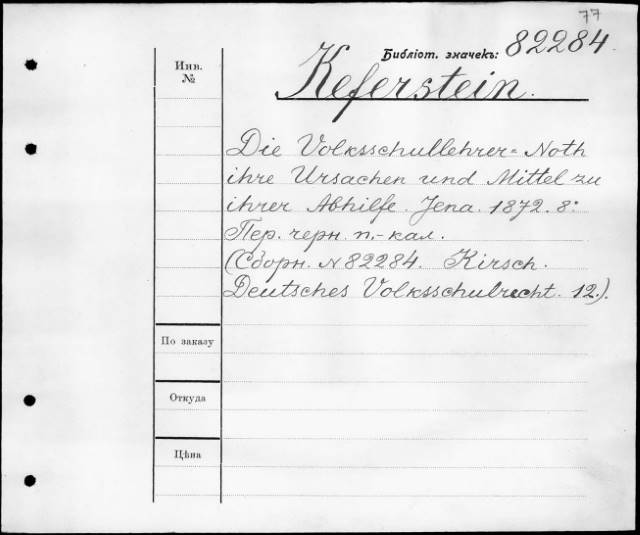 77
Библіот. значекъ: 82284.
Инв. №
Keferstein.
Die Volksschullehrer=Noth
ihre Ursachen und Mittel zu
ihrer Abhilfe. Jena. 1872. 8º
Пер. черн. п.-кал.
(Сборн. N 82284. Kirsch.
Deutsches Volksschulrecht. 12.).
По заказу
Откуда
Цѣна